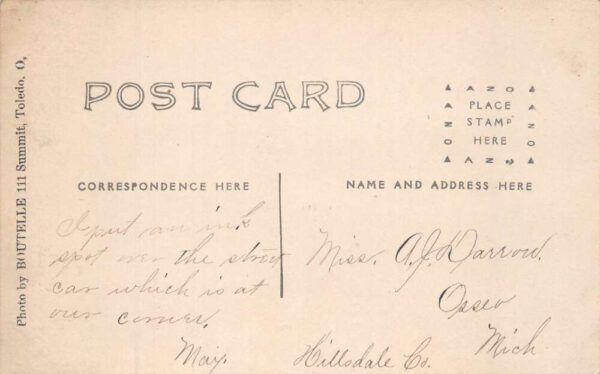 Photo by BOUTELLE 111 Summit, Toledo, O,
POST CARD
AZO
PLACE
STAMP
HERE
AZO
CORRESPONDENCE HERE
NAME AND ADDRESS HERE
I put an ink
spot over the street
car which is at
our corner.
May.
Miss. A.J. Darrow.
Osseo
Mich
Hillsdale Co.